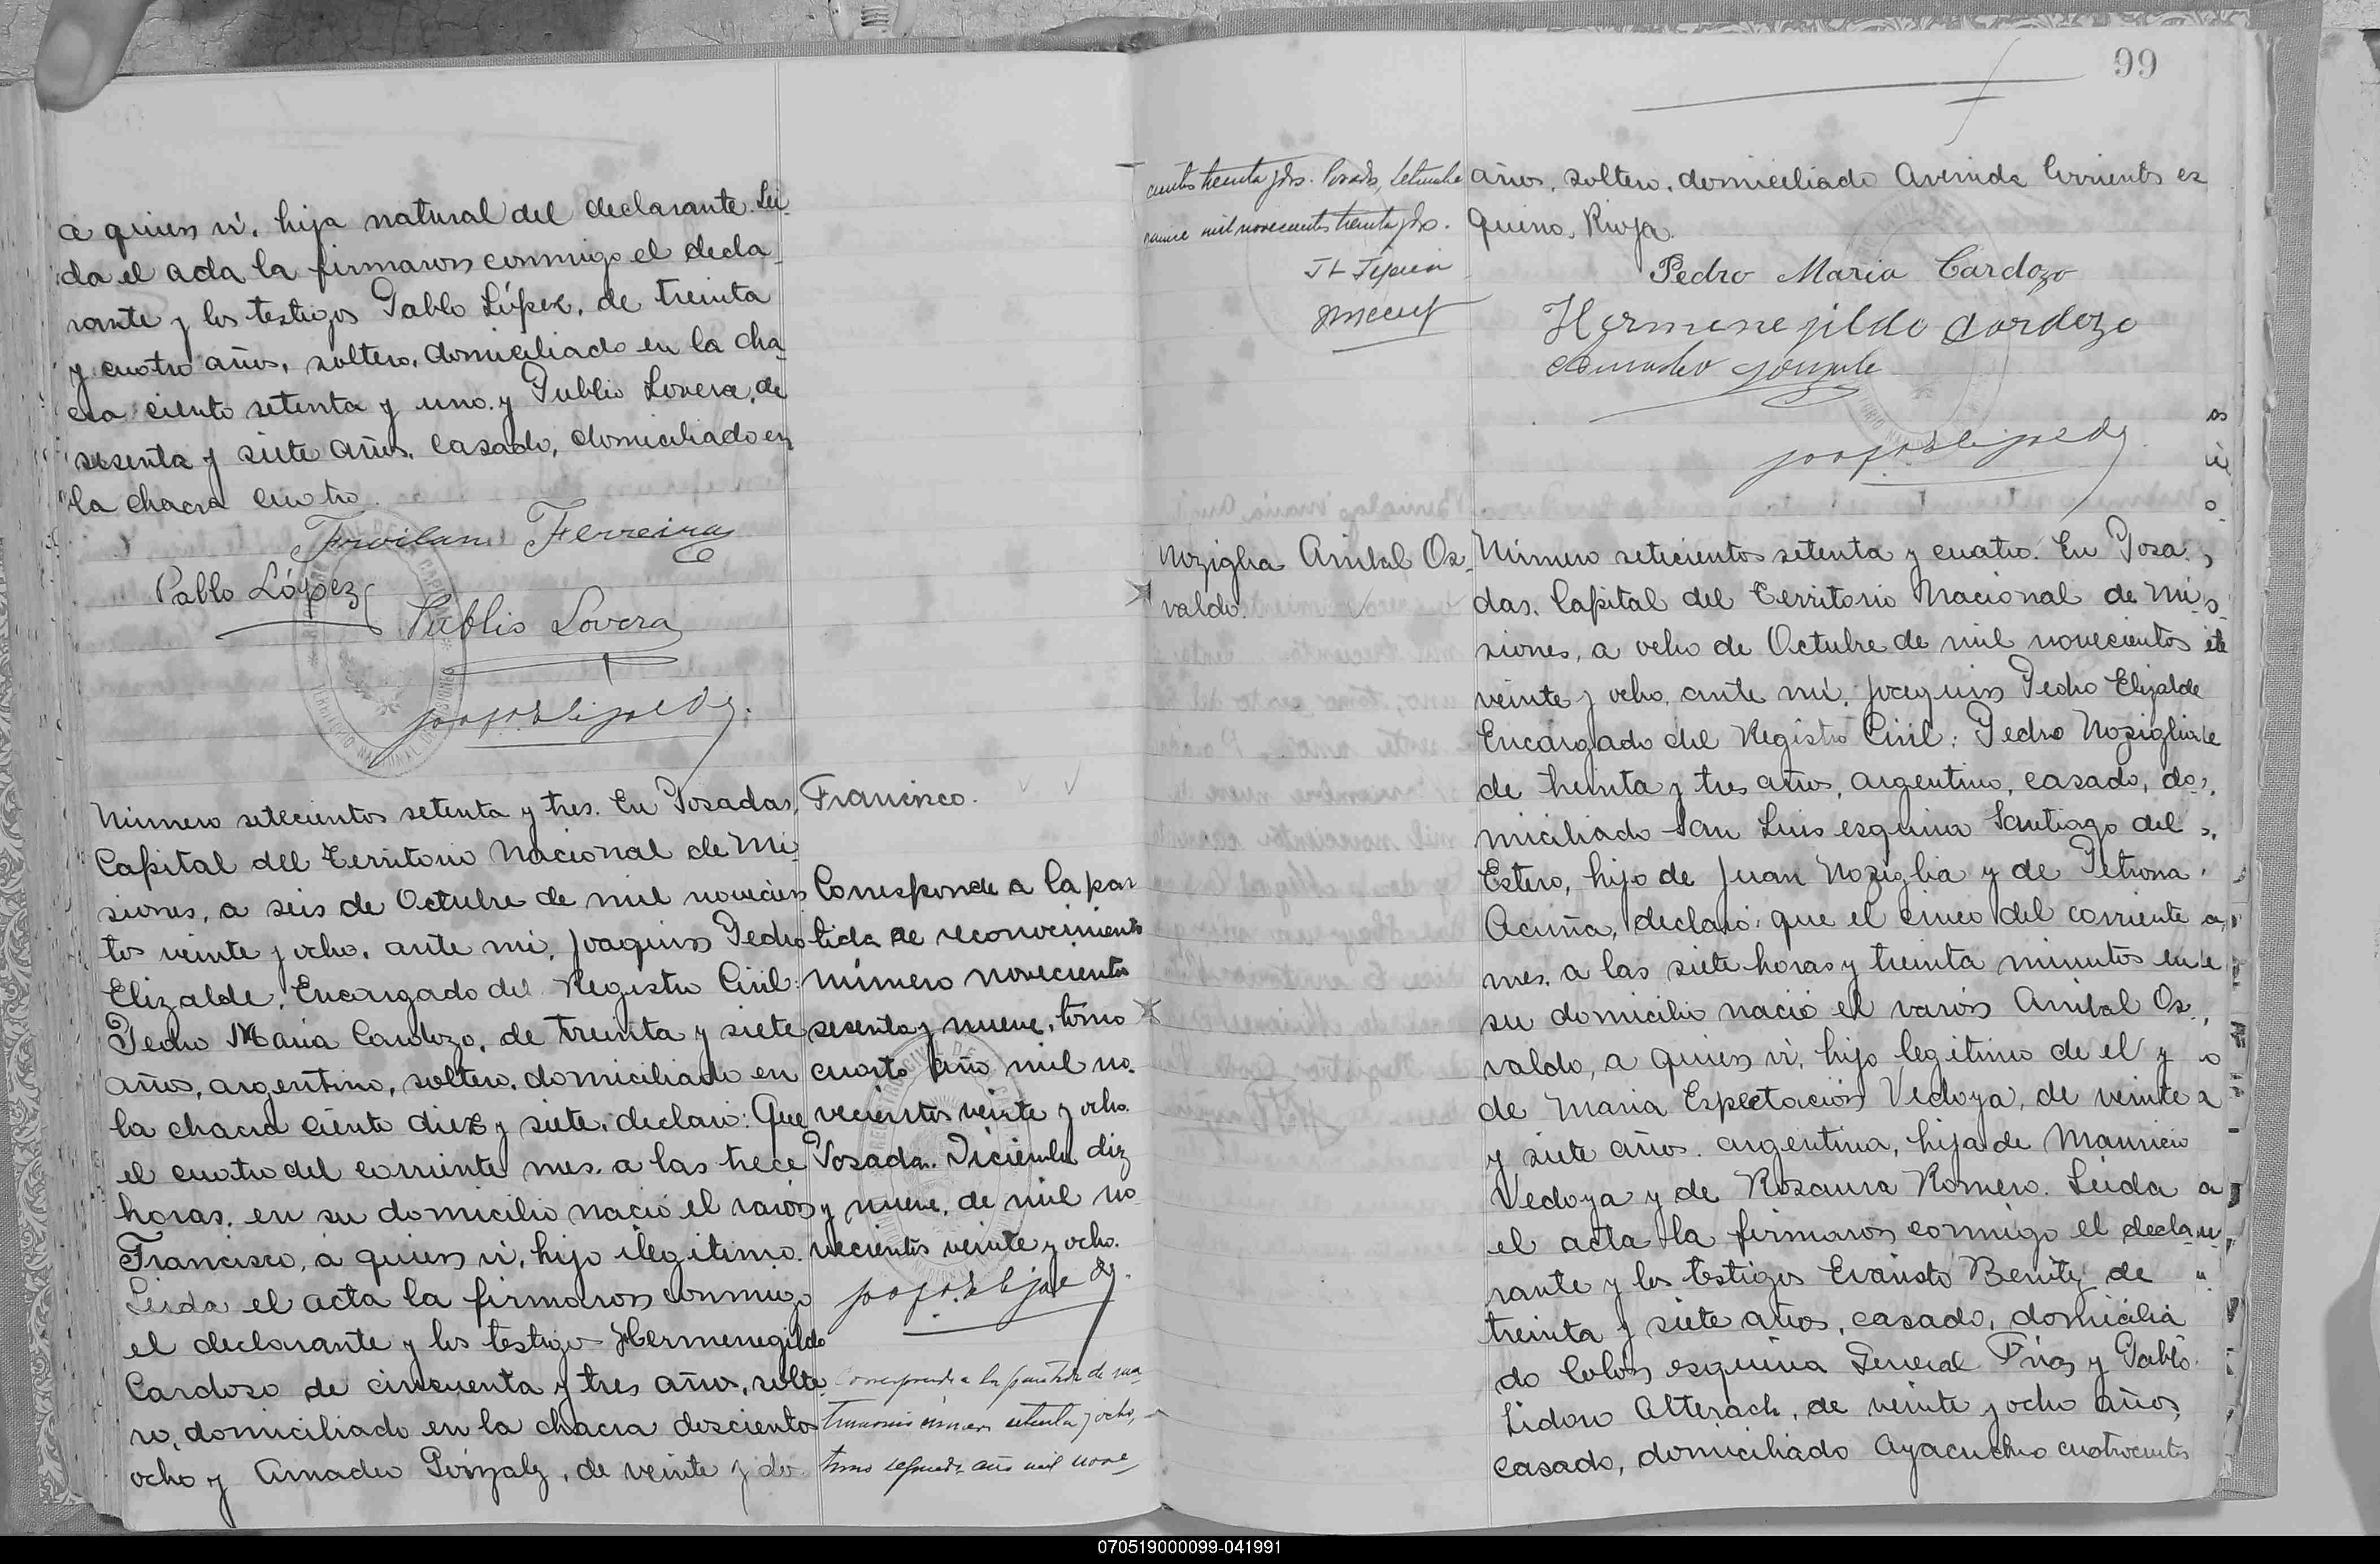 a quien vi, hija natural del declarante. Lei-
da el acta la firmaron conmigo el decla-
rante y los testigos Pablo López, de treinta
y cuatro años, soltero, domiciliado en la cha-
cra ciento setenta y uno y Publio Lovera, de
sesenta y siete años, casado, domiciliado en
la chacra cuatro.
Froilan Ferreira
Pablo López
Publio Lovera
Número setecientos setenta y tres. En Posadas,
Capital del Territorio Nacional de Mi-
siones, a seis de Octubre de mil novecien
tos veinte y ocho, ante mi, Joaquin Pedro
Elizalde, Encargado del Registro Civil:
Pedro Maria Cardozo, de treinta y siete
años, argentino, soltero, domiciliado en
la chacra ciento diez y siete, declaró: Que
el cuatro del corriente mes, a las trece
horas, en su domicilio nació el varón
Francisco, a quien vi, hijo ilegitimo.
Leida el acta la firmaron conmigo
el declarante y los testigos Hermenegildo
Cardoso de cincuenta y tres años, solte-
ro, domiciliado en la chacra doscientos
ocho y Amadeo Gonzalz, de veinte y dos
Francisco.
Corresponde a la par
tida de reconocimiento
número novecientos
sesenta y nueve, tomo
cuarto año mil no-
vecientos veinte y ocho.
Posadas. Diciembre diz
y nueve, de mil no-
vecientos veinte y ocho.
Corresponde a la partida de ma-
trimonio número setenta y ocho,
tomo segundo año mil nove-
99
cientos treinta y dos. Posadas, Setiembre
quince mil novecientos treinta y dos.
años, soltero, domiciliado Avenida Corrientes es
quina Rioja.
Pedro Maria Cardozo
Hermenegildo Cardozo
Amadeo Gonzale
Noziglia Anibal Os-
valdo.
Número seticientos setenta y cuatro. En Posa-
das, Capital del Territorio Nacional de Mi-
siones, a ocho de Octubre de mil novecientos
veinte y ocho, ante mi, Joaquin Pedro Elizalde
Encargado del Registro Civil: Pedro Noziglia
de treinta y tres años, argentino, casado, do-
miciliado San Luis esquina Santiago del
Estero, hijo de Juan Noziglia y de Petrona
Acuña, declaró: que el cinco del corriente
mes, a las siete horas y treinta minutos en
su domicilio nació el varón Anibal Os-
valdo, a quien vi, hijo legitimo de el y
de Maria Espectación Vedoya, de veinte
y siete años, argentina, hija de Mauricio
Vedoya y de Rosaura Romero. Leida
el acta la firmaron conmigo el decla-
rante y los testigos Evaristo Benitz de
treinta y siete años, casado, domicilia
do Colon esquina General Frias y Pablo
Lidoro Alterach, de veinte y ocho años,
casado, domiciliado Ayacucho cuatrocientos
070519000099-041991